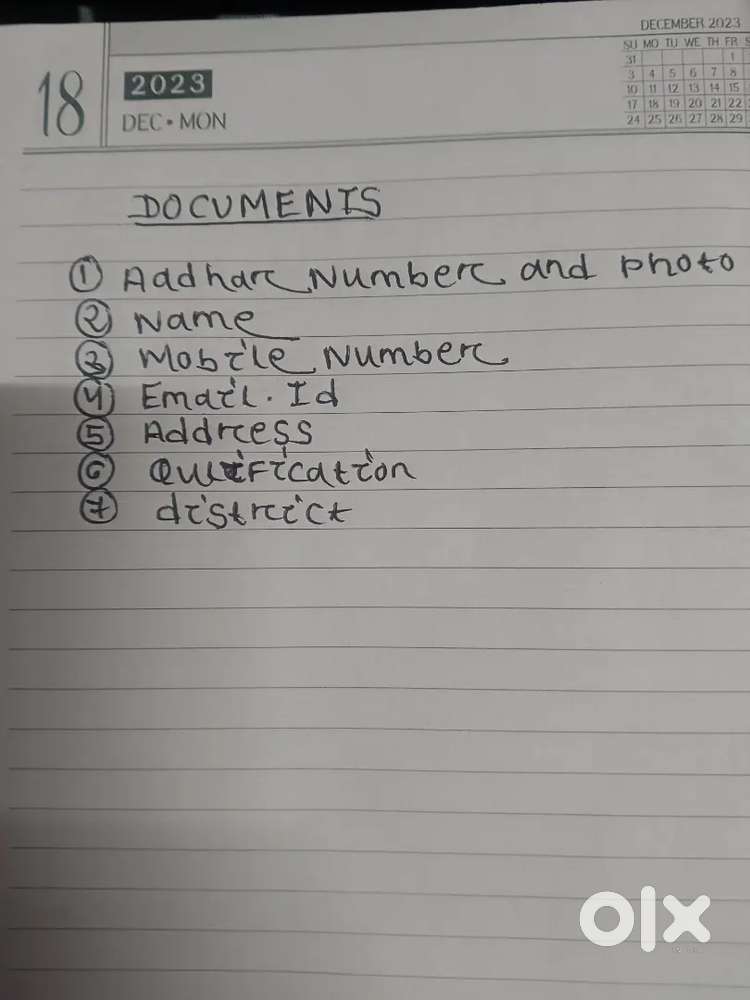 DECEMBER 2023
SU MO TU WE TH FR S
31 1
3 4 5 6 7 8
10 11 12 13 14 15
17 18 19 20 21 22
24 25 26 27 28 29
18
2023
DEC • MON
DOCUMENTS
① Aadhar Number and photo
② Name
③ Mobile Number
④ Email. Id
⑤ Address
⑥ Qulification
⑦ district
olx